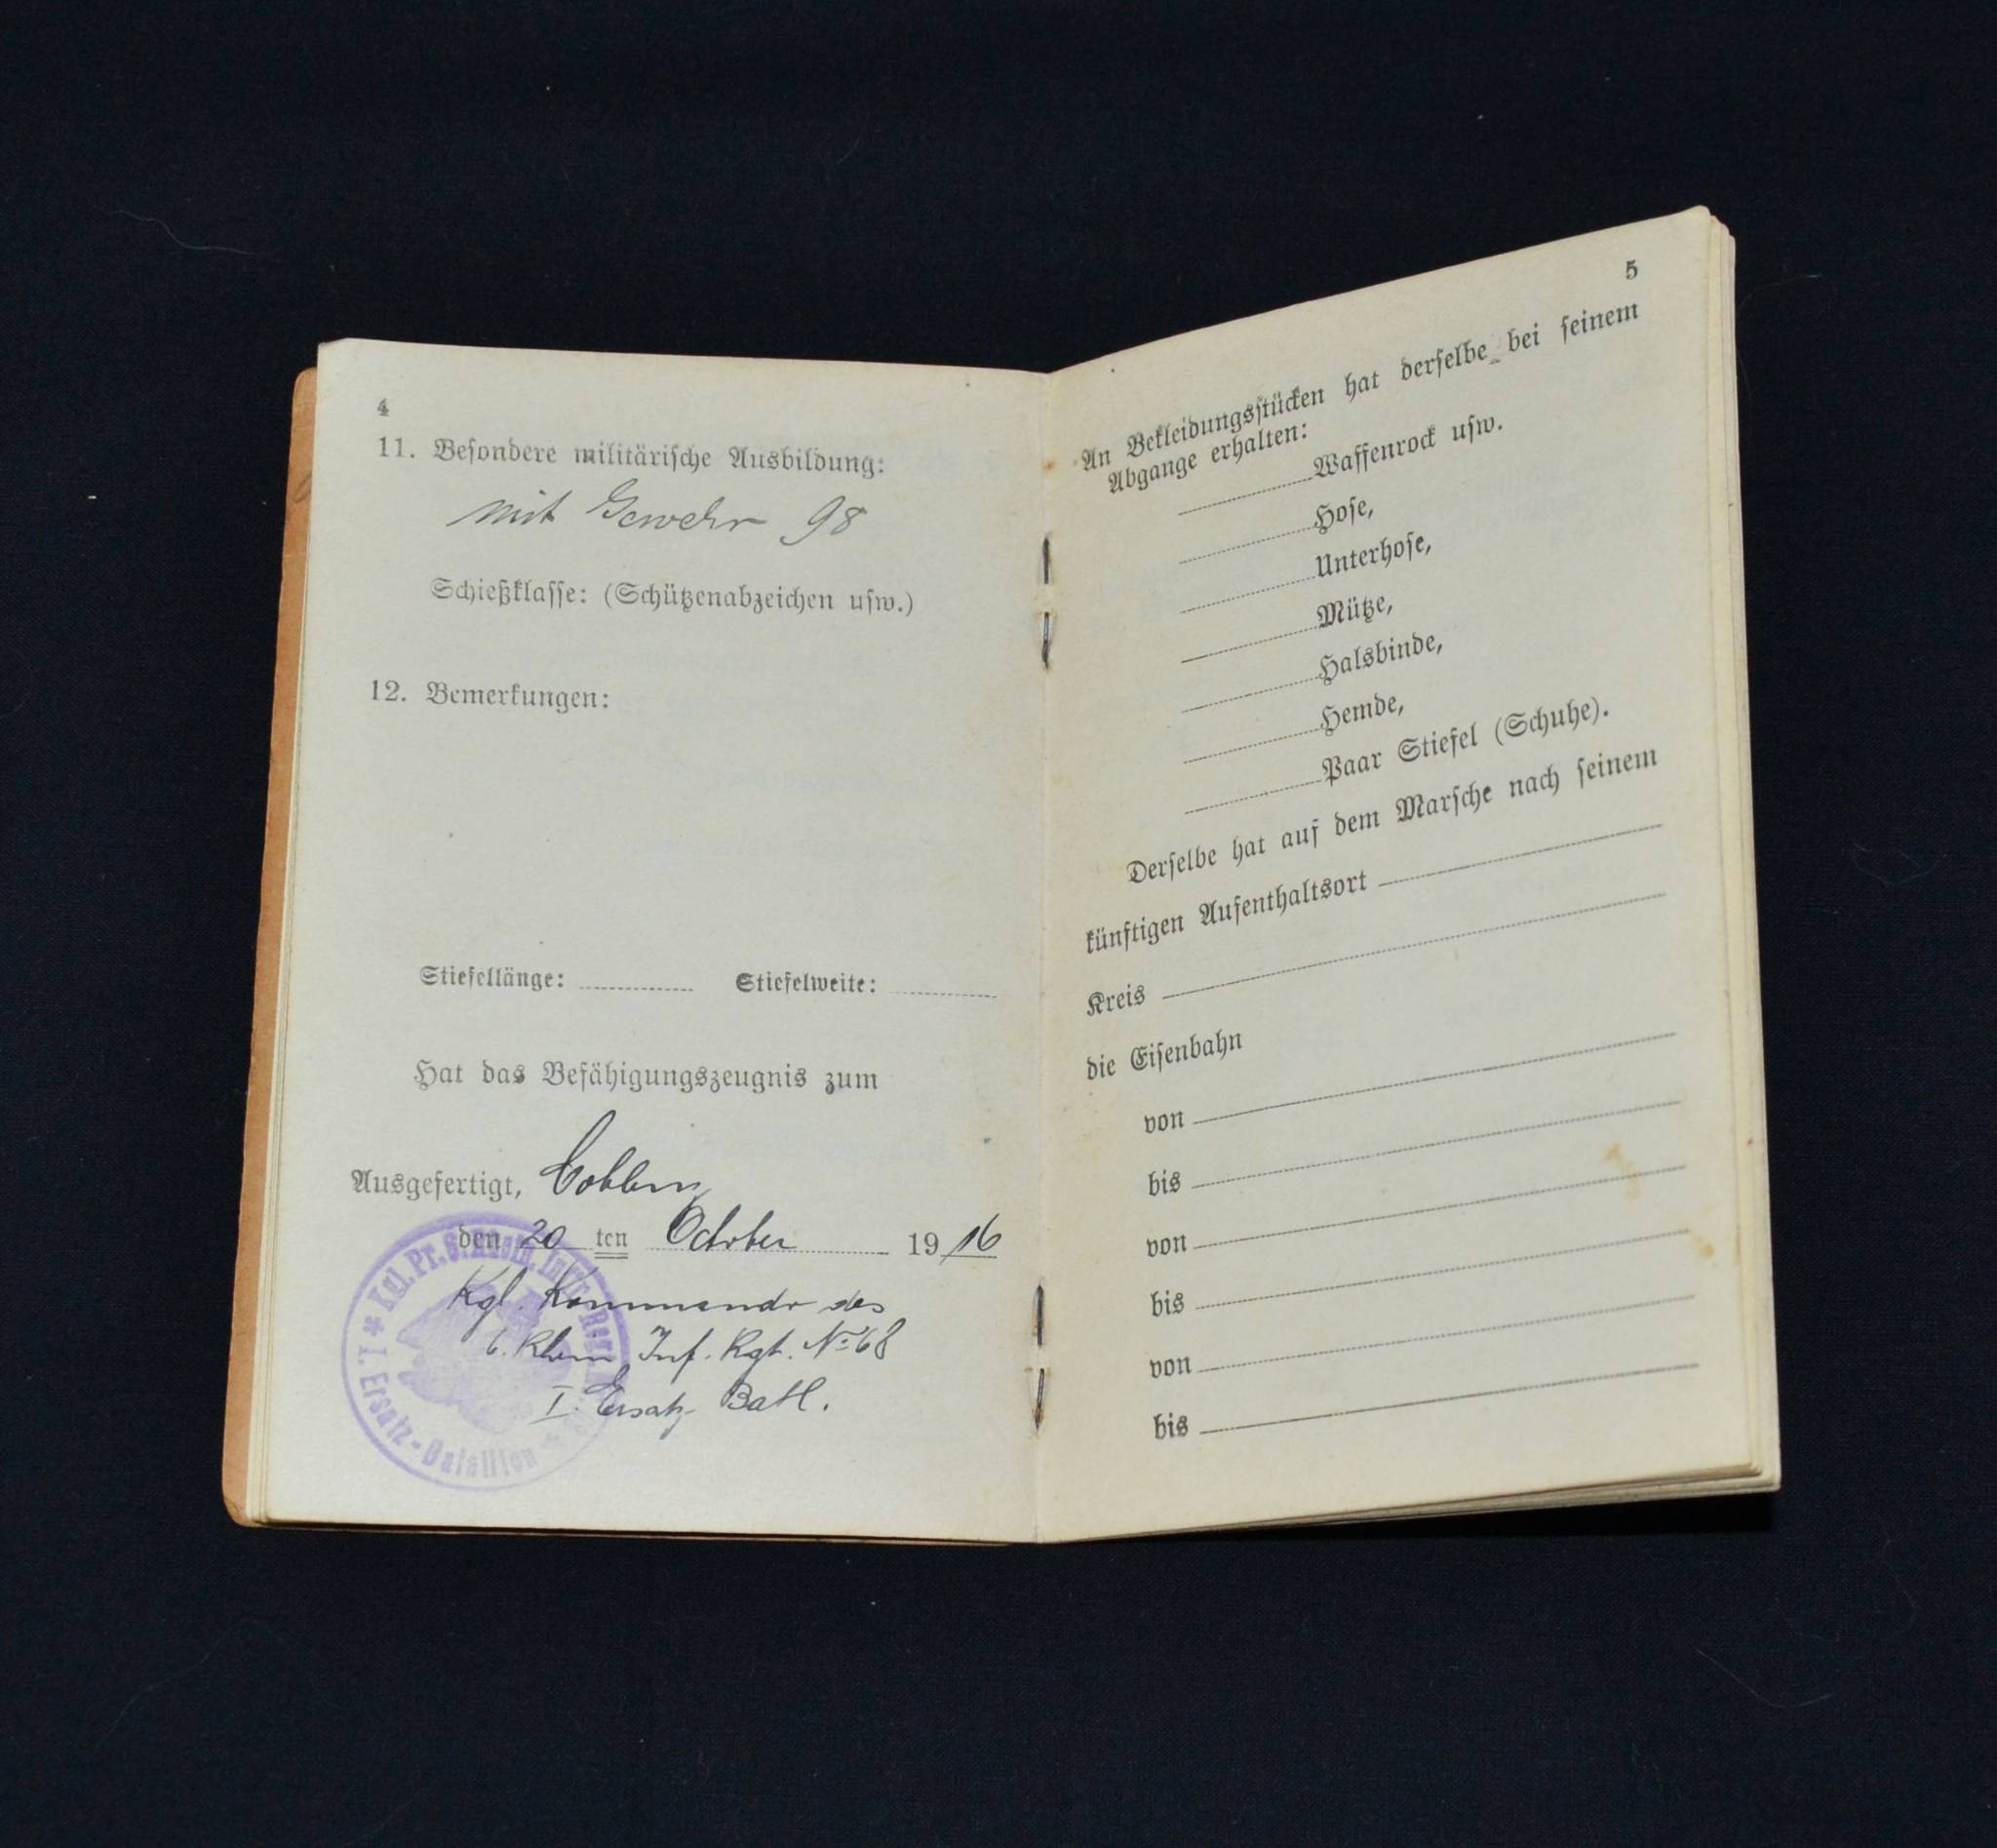 4
11. Besondere militärische Ausbildung:
mit Gewehr 98
Schießklasse: (Schützenabzeichen usw.)
12. Bemerkungen:
Stiefellänge: Stiefelweite:
Hat das Befähigungszeugnis zum
Ausgefertigt, Coblenz
den 20 ten October 1916
Kgl. Kommando des
6. Rhein Inf. Rgt. No 68
I. Ersatz Batl.
* Kgl. Pr. 6. Rhein. Inftr. Regt.
I. Ersatz-Bataillon *
5
An Bekleidungsstücken hat derselbe bei seinem
Abgange erhalten:
Waffenrock usw.
Hose,
Unterhose,
Mütze,
Halsbinde,
Hemde,
Paar Stiefel (Schuhe).
Derselbe hat auf dem Marsche nach seinem
künftigen Aufenthaltsort
Kreis
die Eisenbahn
von
bis
von
bis
von
bis